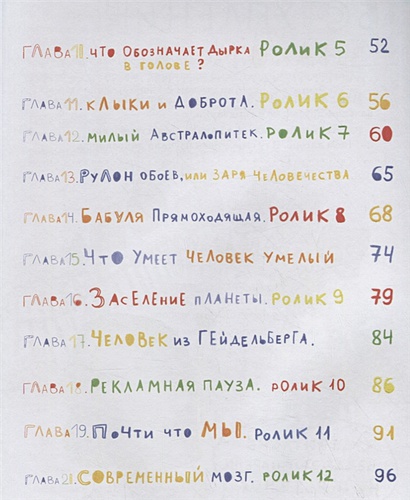 ГЛАВА 10. ЧТО ОБОЗНАЧАЕТ ДЫРКА РОЛИК 5 52
В ГОЛОВЕ?
ГЛАВА 11. КЛЫКИ И ДОБРОТА. РОЛИК 6 56
ГЛАВА 12. МИЛЫЙ АВСТРАЛОПИТЕК. РОЛИК 7 60
ГЛАВА 13. РУЛОН ОБОЕВ, ИЛИ ЗАРЯ ЧЕЛОВЕЧЕСТВА 65
ГЛАВА 14. БАБУЛЯ ПРЯМОХОДЯЩАЯ. РОЛИК 8 68
ГЛАВА 15. ЧТО УМЕЕТ ЧЕЛОВЕК УМЕЛЫЙ 74
ГЛАВА 16. ЗАСЕЛЕНИЕ ПЛАНЕТЫ. РОЛИК 9 79
ГЛАВА 17. ЧЕЛОВЕК ИЗ ГЕЙДЕЛЬБЕРГА. 84
ГЛАВА 18. РЕКЛАМНАЯ ПАУЗА. РОЛИК 10 86
ГЛАВА 19. ПОЧТИ ЧТО МЫ. РОЛИК 11 91
ГЛАВА 20. СОВРЕМЕННЫЙ МОЗГ. РОЛИК 12 96